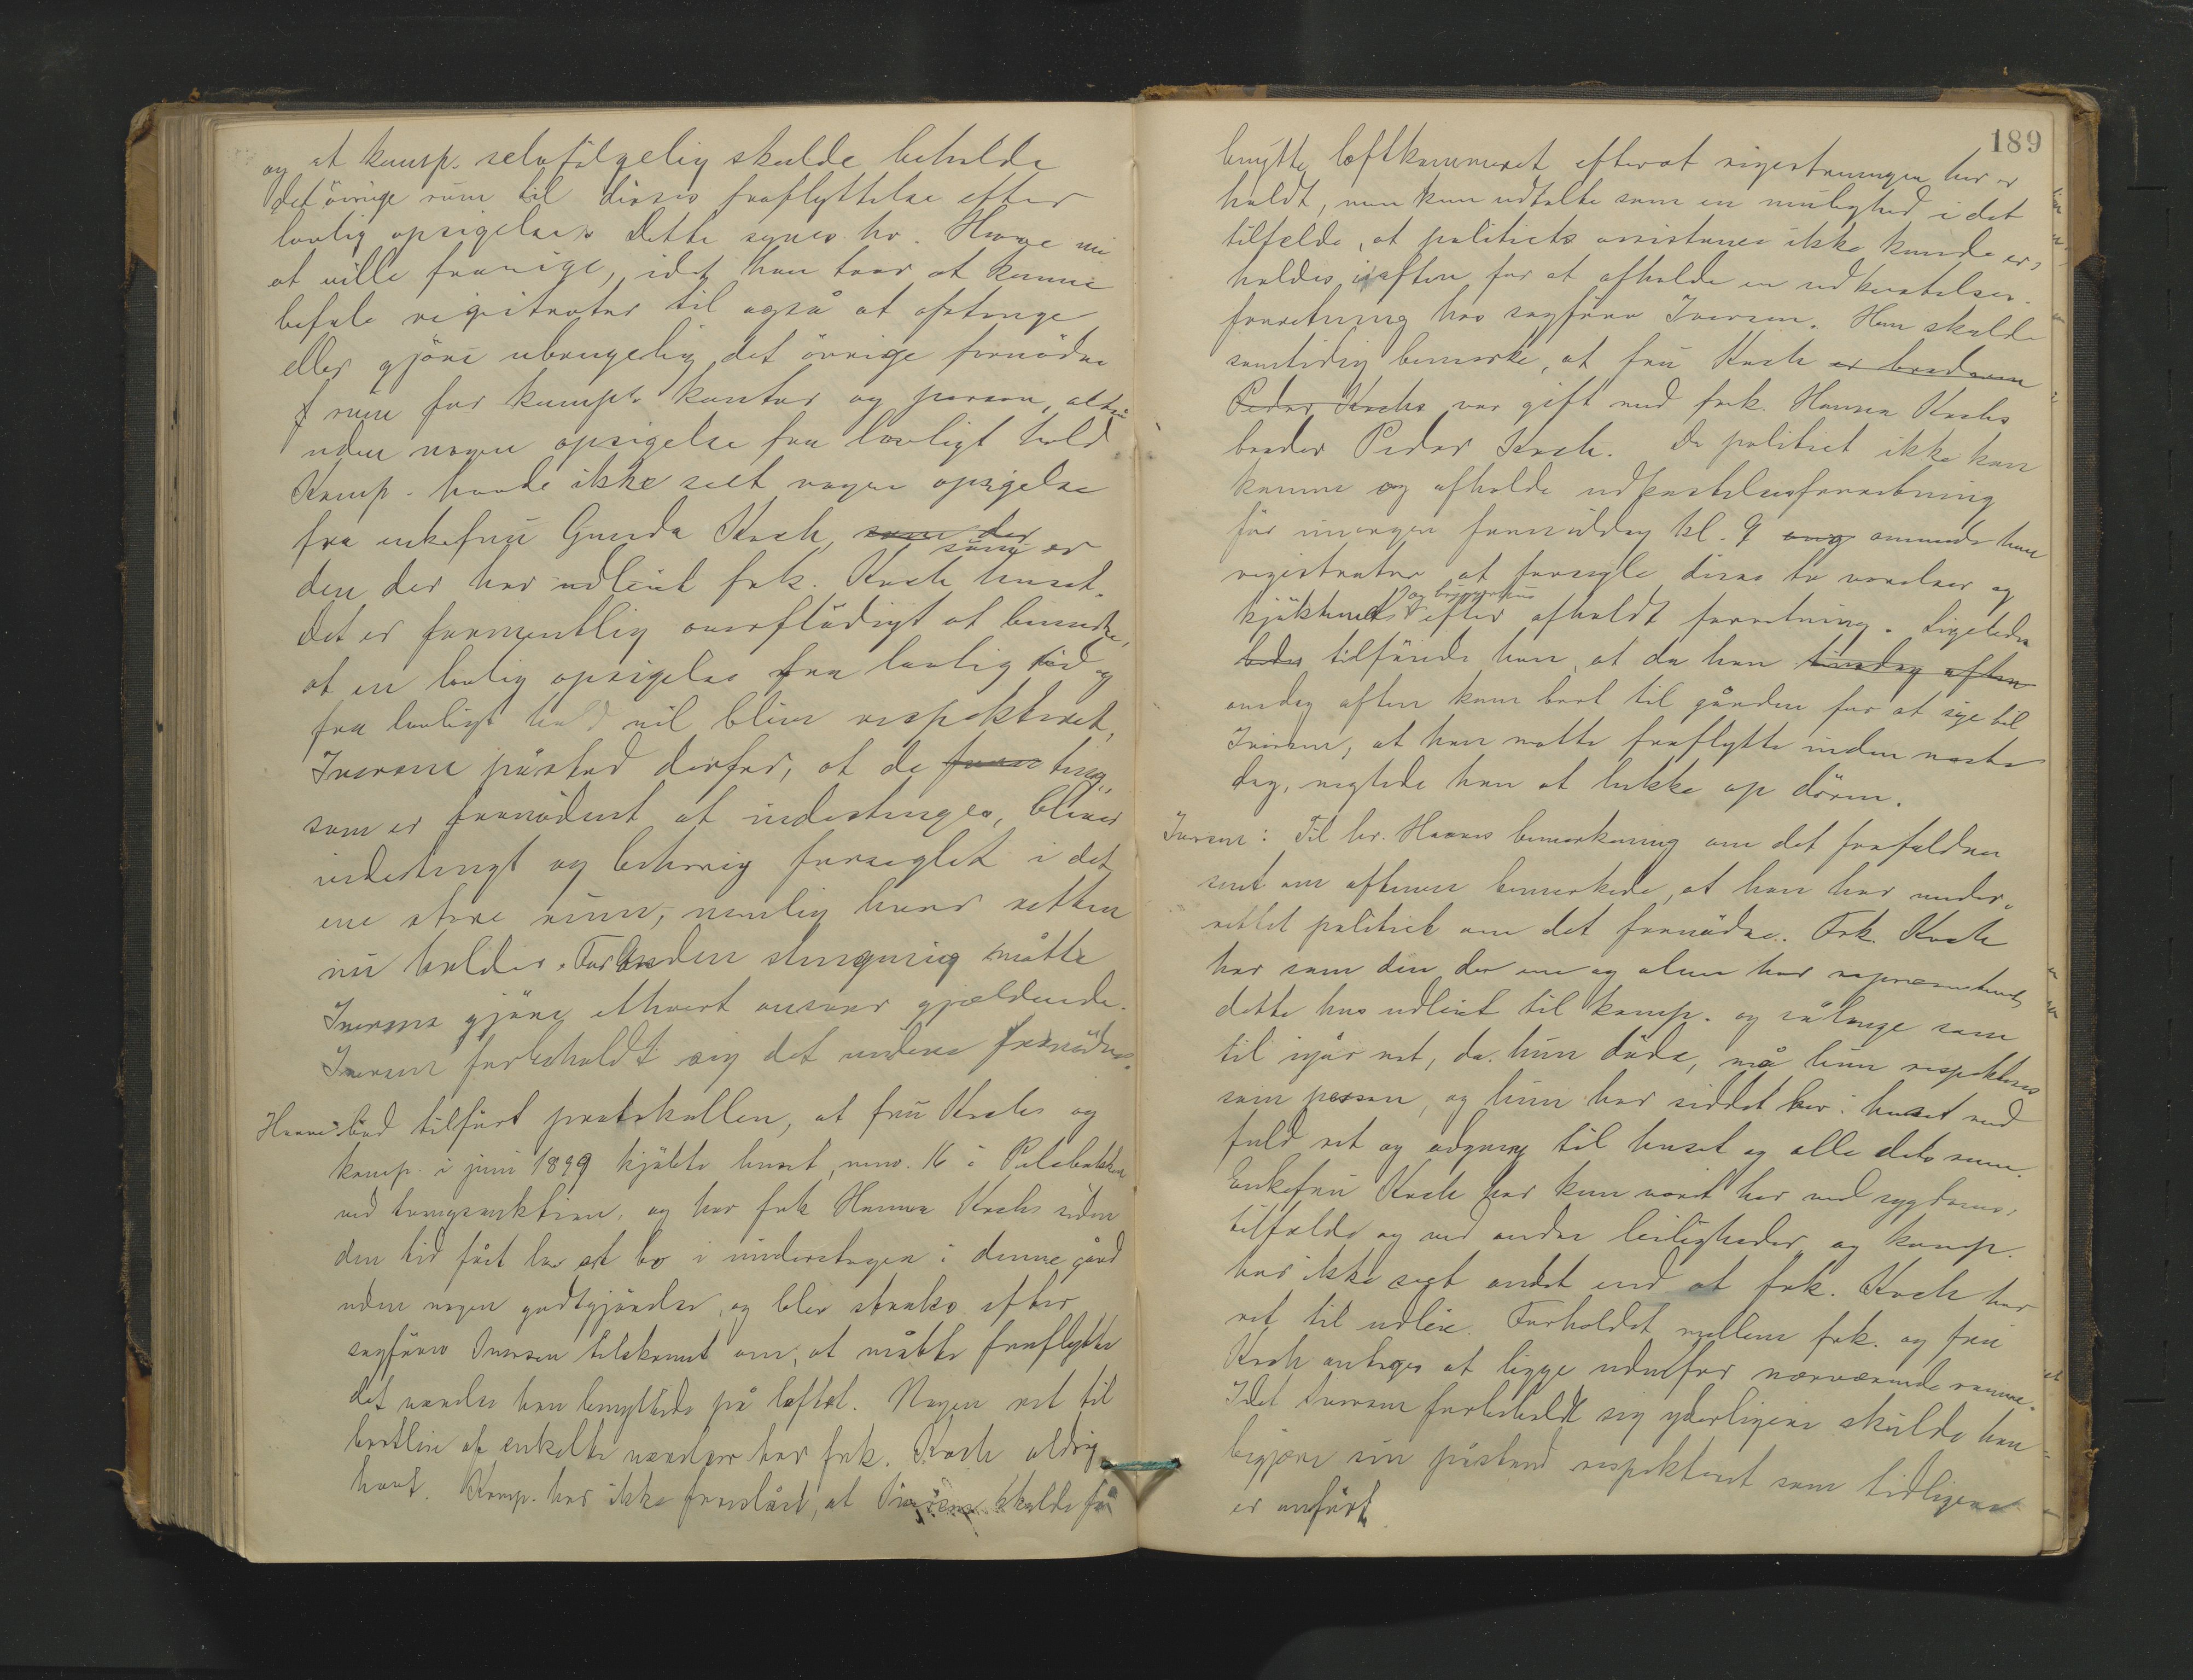 og at komp. selvfölgelig skulde beholde
det övrige rum til disses fraflyttelse efter
lovlig opsigelse. Dette synes hr. Haave nu
at ville fravige, idet han tror at kunne
befale registrator til også at afstenge
eller gjöre ubrugelig det övrige fornödne
rum for komp. kontor og person, altså
uden nogen opsigelse fra lovligt hold
Komp. havde ikke seet nogen opsigelse
fra enkefru Gunda Koch, som der
den der har udleiet frk. Koch huset.
Det er formentlig overflödigt at bemerke,
at en lovlig opsigelse fra lovlig tid og
fra lovligt hold vil blive respekteret,
Iversen påstod derfor, at de ting,
som er fornödent at indestenges, bliver
indestengt og behörig forseglet i det
ene store rum, nemlig hvor retten
nu holdes. For anden stengning måtte
Iversen gjöre ethvert ansvar gjældende.
Iversen forbeholdt sig det videre fornödne.
Haave bad tilfört protokollen, at fru Koch og
komp. i juni 1899 kjöbte huset, mno. 16 i
ved tvangsauktion, og har frk Hanna Koch siden
den tid fåt lov at bo i underetagen i denne gård
uden nogen godtgjörelse, og blev straks efter
sagförer Iversen tilskrevet om, at måtte fraflytte
det værelse han benyttede på loftet. Nogen ret til
bortleie af enkelte værelser har frk. Koch aldrig
havt. Komp. har ikke foreslået, at Iversen skulde få
189
benytte loftkammeret efterat registreringen her er
holdt, men kun udtalte som en mulighed, i det
tilfelde, at politiets assistance ikke kunde er-
holdes iaften for at afholde en udkastelses-
forretning hos sagförer Iversen. Han skulde
samtidig bemerke, at fru Koch er
Peder Kochs var gift med frk. Hanna Kochs
broder Peder Koch. Da politiet ikke kan
komme og afholde udkastelsesforretning
för imorgen formiddag kl. 9 anmode han
registrator at forsegle disse to værelser og
kjökkenet og bryggerhus efter afholdt forretning. Ligeledes
tilföiede han, at da han tirsdag aften
onsdag aften kom bort til gården for at sige til
Iversen, at han måtte fraflytte inden næste
dag, negtede han at lukke op dören.
Iversen: Til hr. Haaves bemerkning om det forefaldne
sent om aftenen bemerkede, at han har under-
rettet politiet om det fornödne. Frk. Koch
har som den der ene og alene har repræsenteret
dette hus udleiet til komp. og sålenge som
til igår nat, da hun döde, må hun respekteres
som person, og hun har siddet her i huset med
fuld ret og adgang til huset og alle dets rum.
Enkefru Koch har kun været her ved sygdoms-
tilfelde og ved andre leiligheder og komp.
har ikke sagt andet end at frk. Koch har
ret til udleie. Forholdet mellem frk. og fru
Koch antages at ligge udenfor nærværende ramme.
Idet Iversen forbeholdt sig yderligere skulde han
begjære sin påstand respekteret som tidligere
er anfört